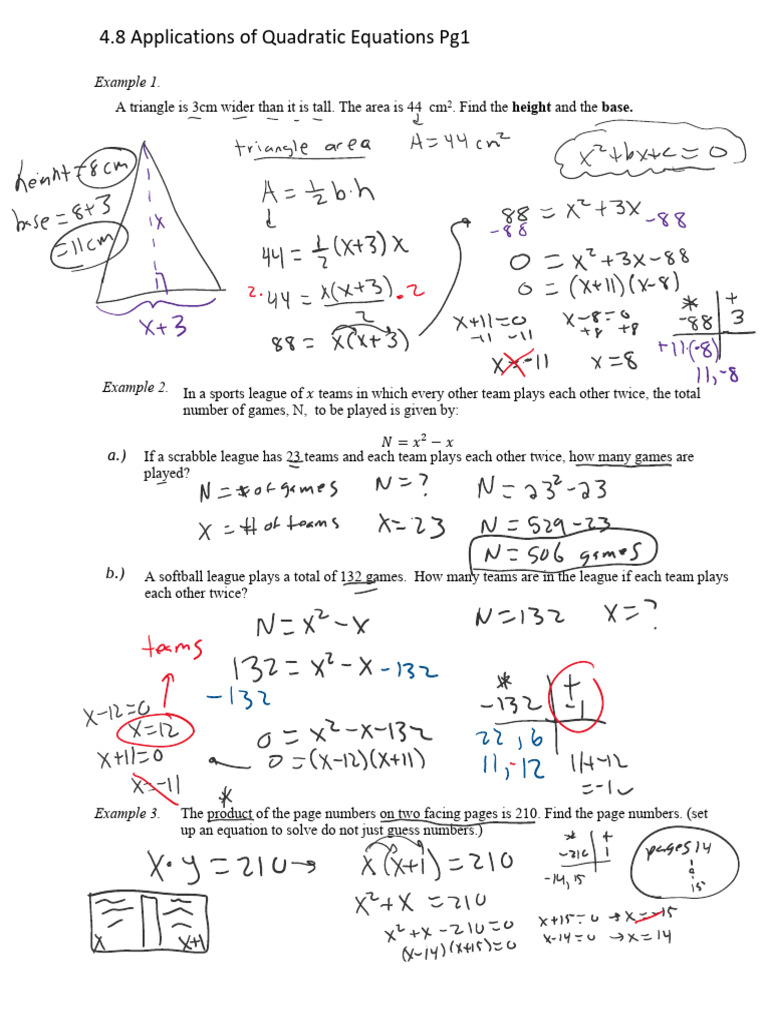 4.8 Applications of Quadratic Equations Pg1
Example 1.
A triangle is 3cm wider than it is tall. The area is 44 cm². Find the height and the base.
height = 8cm
base = 8+3
= 11cm
x
x+3
triangle area
A = 44 cm²
x²+bx+c=0
A = ½ b·h
44 = ½ (x+3) x
2· 44 = x(x+3)/2 · 2
88 = x(x+3)
88 = x²+3x
-88 -88
0 = x²+3x-88
0 = (x+11)(x-8)
x+11=0 x-8=0
-11 -11 +8 +8
x=-11 x=8
* +
-88 3
+11·(-8)
11,-8
Example 2. In a sports league of x teams in which every other team plays each other twice, the total
number of games, N, to be played is given by:
N = x² − x
a.) If a scrabble league has 23 teams and each team plays each other twice, how many games are
played?
N = # of games N=? N = 23²-23
x = # of teams x=23 N = 529-23
N = 506 games
b.) A softball league plays a total of 132 games. How many teams are in the league if each team plays
each other twice?
N = x²-x N=132 x=?
132 = x²-x -132
-132
0 = x²-x-132
0=(x-12)(x+11)
teams
x-12=0
x=12
x+11=0
x=-11
* +
-132 -1
22, 6
11,-12
11+-12
=-1
*
Example 3. The product of the page numbers on two facing pages is 210. Find the page numbers. (set
up an equation to solve do not just guess numbers.)
x·y = 210 → x(x+1) = 210
x²+x = 210
x²+x-210=0
(x-14)(x+15)=0
x x+1
* +
-210 1
-14, 15
x+15=0 → x=-15
x-14=0 → x=14
pages 14
&
15